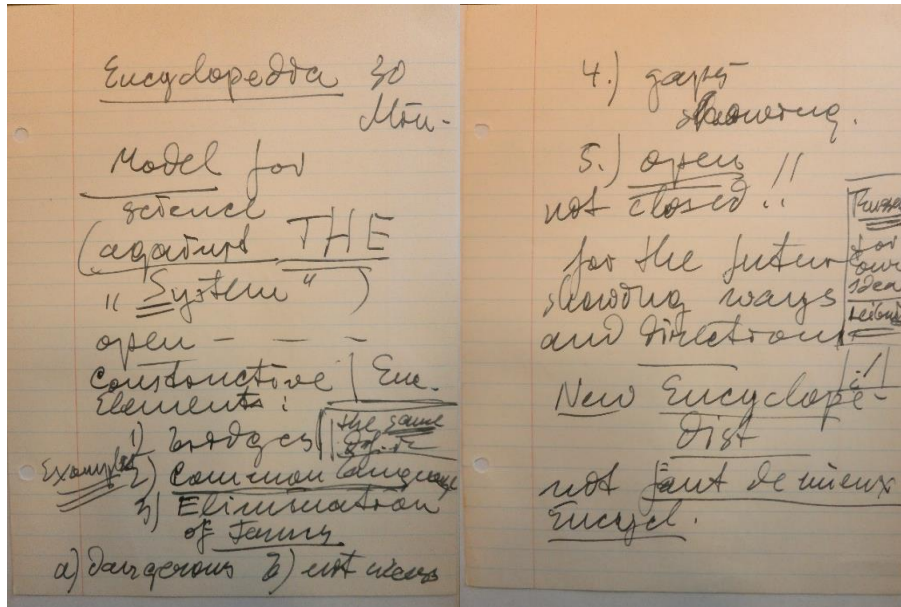 Encyclopedia 30
Min-
Model for
science
(against THE
"System")
open - - -
Constructive
Elements:
Enc.
1) bridges
the same
Example
2) Common language
3) Elimination
of Terms
a) dangerous b) not
4.) gaps
showing.
5.) open !!
not closed!!
for the future
showing ways
and directions
for
our
idea
Leibniz
New Encyclope-
dist
not faut de mieux
Encycl.